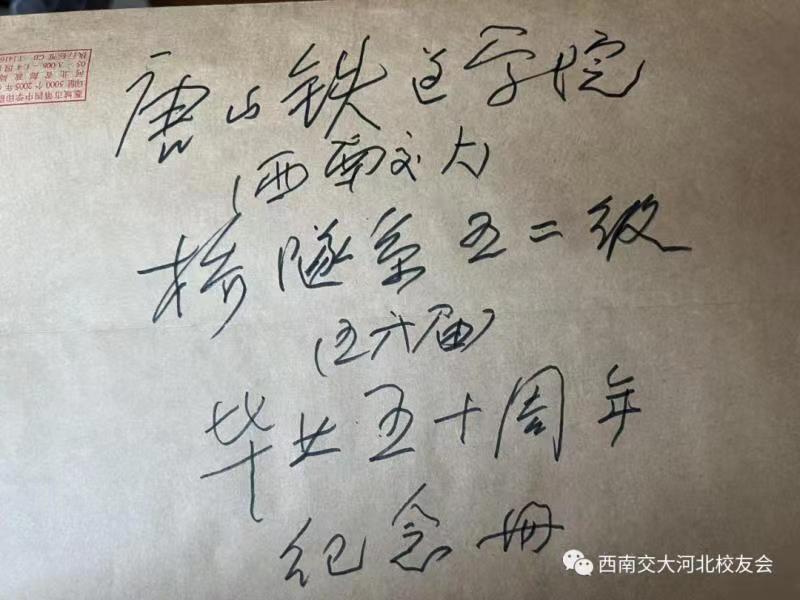 唐山铁道学院
(西南交大)
桥隧系五二级
(五六届)
毕业五十周年
纪念册
西南交大河北校友会